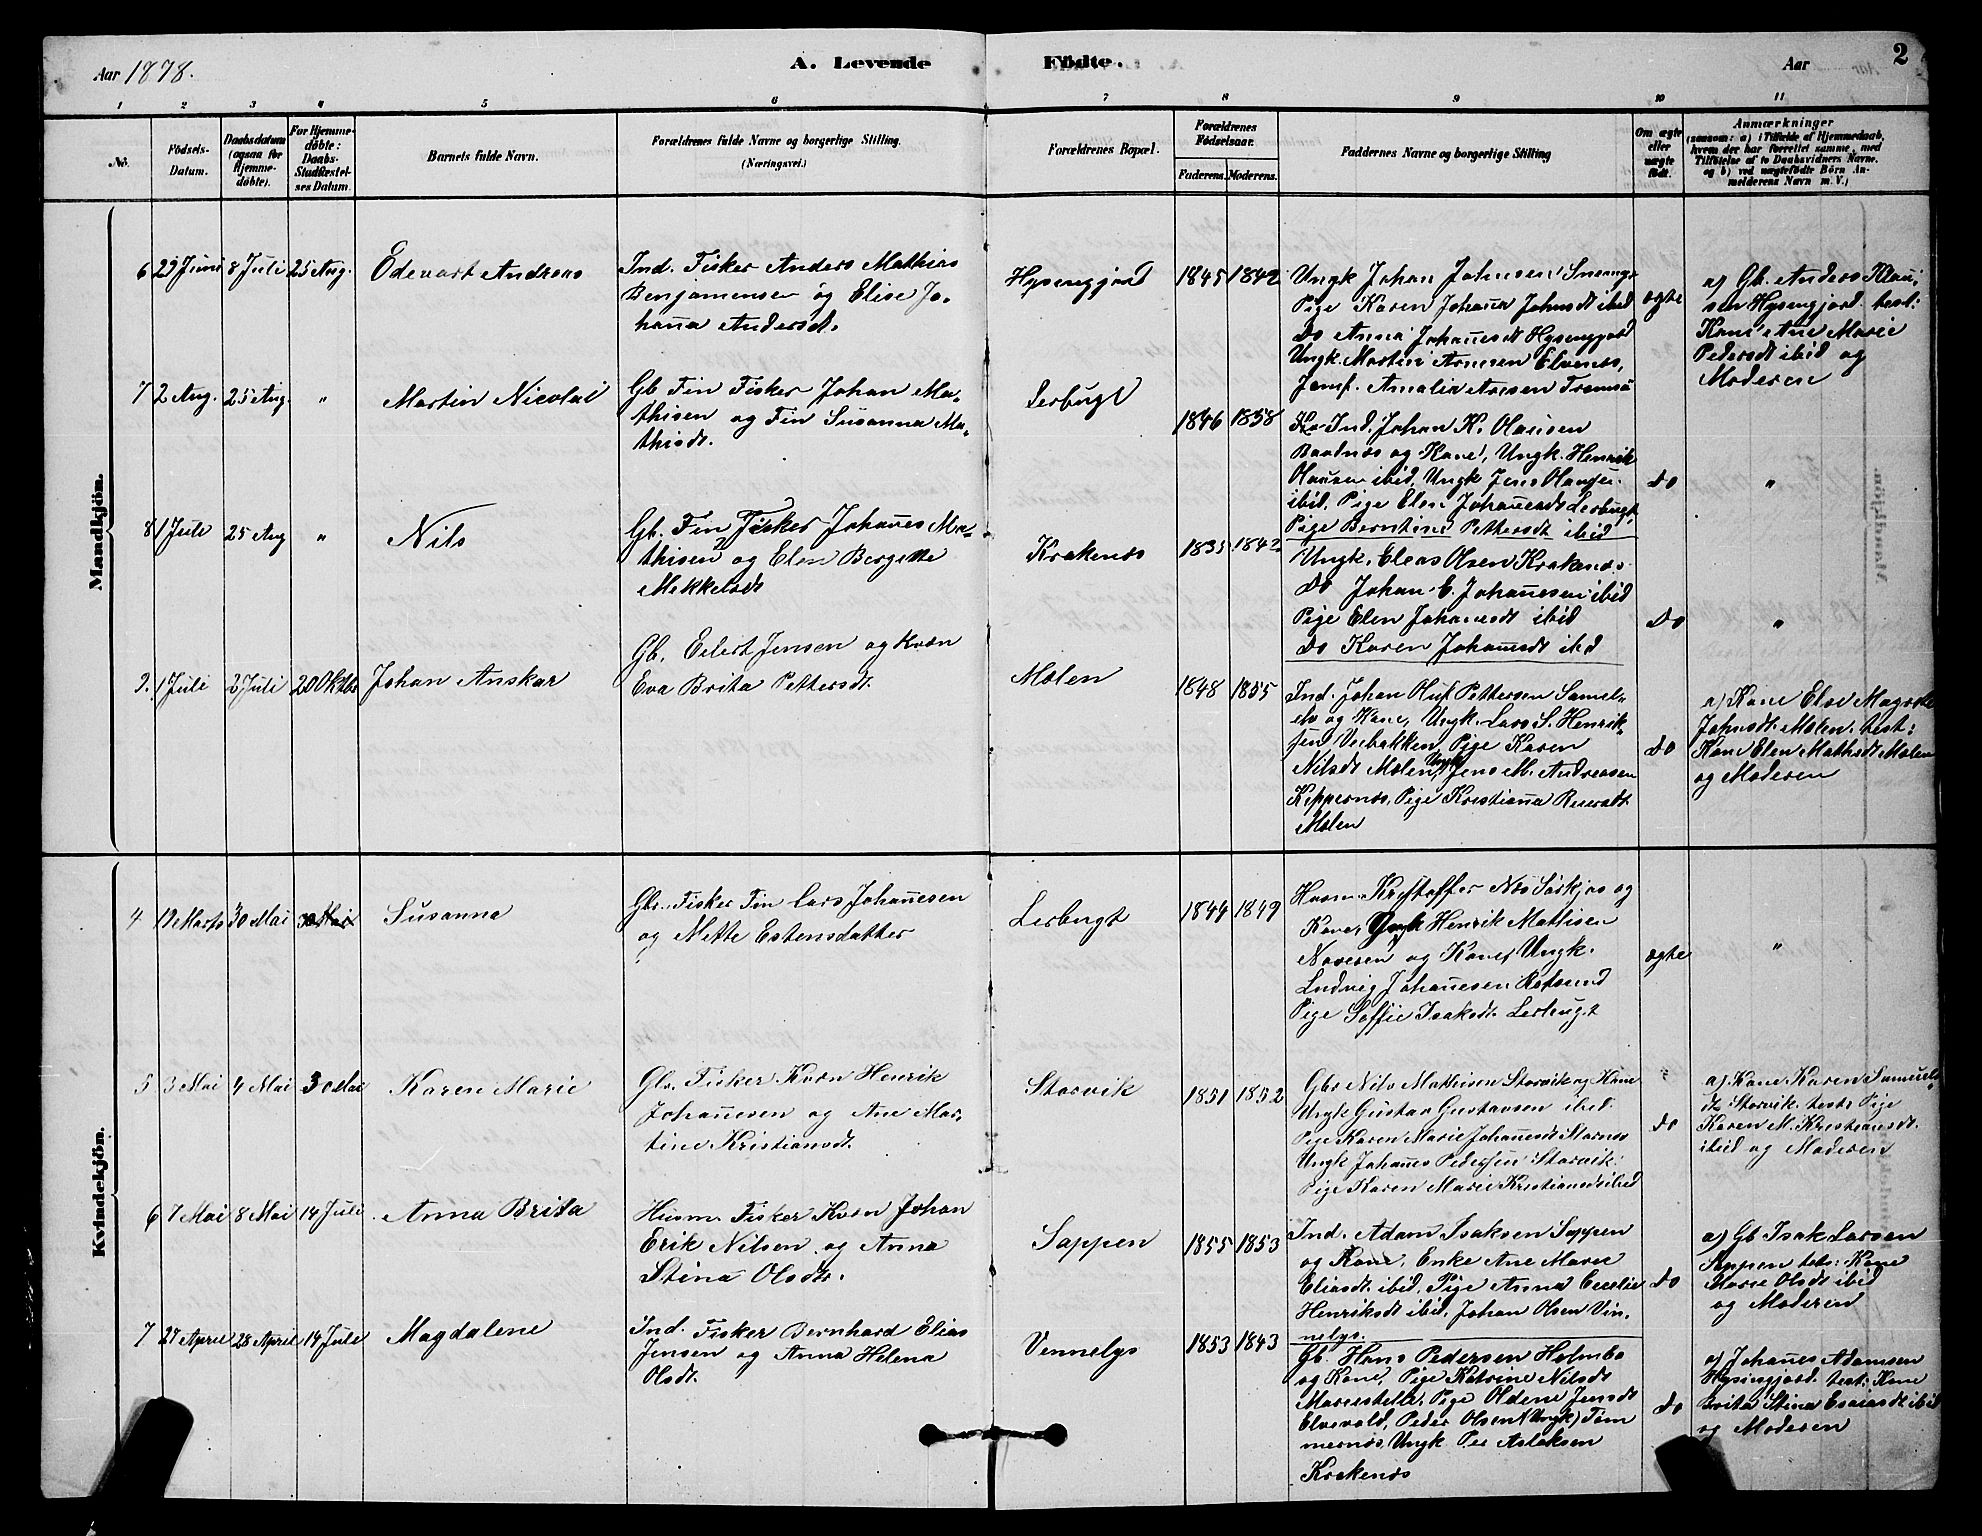 Aar 1878.
A. Levende Födte.
Aar
2
1 2 3 4 5 6 7 8 9 10 11
No.
Födsels-Datum.
Daabsdatum (ogsaa for Hjemme-döbte).
For Hjemme-döbte: Daabs-Stadfæstel-ses Datum.
Barnets fulde Navn.
Forældrenes fulde Navne og borgerlige Stilling. (Næringsvei.)
Forældrenes Bopæl.
Forældrenes Födselsaar.
Faderens. Moderens.
Faddernes Navne og borgerlige Stilling
Om ægte eller uægte födt.
Anmærkninger
(saasom: a) i Tilfælde af Hjemmedaab,
hvem der har forrettet samme, med
Tilföielse af to Daabsvidners Navne.
og b) ved uægtefödte Börn An-
melderens Navn m. V.)
Mandkjön.
6 29 Juni 8 Juli 25 Aug. Edevart Andreas
Ind. Fisker Anders Mathias
Benjamensen og Elise Jo-
hana Andersdt.
Hysengjord 1845 1842
Ungk Johan Johnsen
Pige Karen Johana Johnsdt ibid
Do Anna Johanesdt Hysengjord
Ungk. Martin Arnesen Elvenes,
Jomf. Amalia Arnesen Tromsö
ægte
a) Gb. Anders Klau-
sen Hysengjord. test:
Kone Ane Marie
Pedersdt ibid og
Moderen
7 2 Aug. 25 Aug. " Martin Nicolai
Gb Fin Fisker Johan Ma-
thisen og Fin Susanna Ma-
thisdt.
Lerbugt 1846 1858
Ind. Johan K. Olausen
Baadnes og Kone, Ungk. Henrik
Olausen ibid, Ungk Jens Olausen
ibid, Pige Elen Johanesdt Lerbugt,
Pige Berntine Pettersdt ibid
Do "
8 1 Juli 25 Aug " Nils
Gb. Fin Fisker Johanes Ma-
thisen og Elen Bergette
Mekkelsdt
Krakenes 1835 1842
Ungk. Elias Olsen Krakenes.
Do Johan E. Johanesen ibid
Pige Elen Johanesdt ibid
Do Karen Johanesdt ibd
Do "
9. 1 Juli 2 Juli 20 Oktbr Johan Anskar
Gb. Eilert Jensen og Kvæn
Eva Brita Pettersdt.
Molen 1848 1855
Ind. Johan Oluf Pettersen Samel-
elv og Kone, Ungk. Lars S. Henrik-
sen Veibakken, Pige Karen
Nilsdt Molen, Ungk Jens M. Andreasen
Keppernes, Pige Kristiana
Molen
Do
a) Kone Else
Johnsdt. Molen. test:
Kone Elen Mathisdt Molen
og Moderen
Kvindekjön.
4 12 Marts 30 Mai 30 Mai Susanna
Gbr. Fisker Fin Lars Johanesen
og Mette Estensdatter
Lerbugt 1844 1849
Husm Kristoffer Sörkjos og
Kone, Ungk Henrik Mattisen
og Kone, Ungk.
Ludvig Johanesen Rotsund
Pige Soffie Isaksdt. Lerbugt
ægte "
5 3 Mai 4 Mai 30 Mai Karen Marie
Gbr. Fisker Kvæn Henrik
Johanesen og Ane Mar-
tine Kristiansdt.
Storvik 1851 1852
Gbr Nils Mathisen Storvik og Kone
Ungk Gustav Gustavsen ibid.
Pige Karen Marie Johanesdt Stornes
Ungk Johanes Pedersen Storvik.
Pige Karen Marie Kristiansdt ibid
Do
a) Kone Karen Samuels-
dt. Storvik. test: Pige
Karen M. Kristiansdt.
ibid og Moderen
6 7 Mai 8 Mai 14 Juli Anna Brita
Husm. Fisker Kvæn Johan
Erik Nilsen og Anna
Stina Olsdtr.
Sappen 1855 1853
Ind. Adam Isaksen Sappen
og Kone, Enke Ane Marie
Eliasdt ibid, Pige Anna Cecelie
Henriksdt ibid, Johan Olsen Vin-
nelys.
Do
a) Gb Isak Larsen
Sappen test: Kone
Marie Olsdt ibid
og Moderen
7 27 April 28 April 14 Juli Magdalene
Ind. Fisker Bernhard Elias
Jensen og Anna Helena
Olsdt.
Vennelys 1853 1843
Gb. Hans Pedersen Holmbo
og Kone, Pige Katrine Nilsdt
Pige Oldene Jensdt
Elvevold, Peder Olsen (Ungk) Töm
mernes, Ungk Per Aslaksen
Krakenes
Do
a) Johanes Adamsen
Hysingjord. test: Kone
Brita Stina Esaiasdt ibid
og Moderen